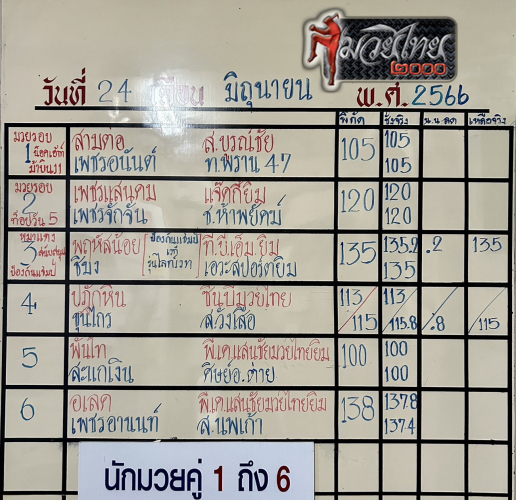 มวยไทย
๒๐๐๐
วันที่ 24 เดือน มิถุนายน พ.ศ. 2566
พิกัด ชั่งจริง น.น.ลด เหลือจ่าง
มวยรอบ
น็อคเอ้าท์
1
ม้าบิน11
สามตอ ส.บูรณ์ชัย 105 105
เพชรอนันต์ ท.พราน 47 105
มวยรอบ
2
ท็อปวัน 5
เพชรแสนคม แจ๊คกี่ยิม 120 120
เพชรจักจั่น ช.ห้าพยัคฆ์ 120
3
ป้องกันแชมป์
พฤหัสน้อย ป้องกันแชมป์ ที.บี.เอ็ม.ยิม 135 135.2 .2 135
ชิบง รุ่นไลท์เวท เอวะสปอร์ตยิม 135
4
ขุภักหิน ซันบีมวยไทย 113 113
ขุนไกร ส.วังเสือ 115 115.8 .8 115
5
พันไท พี.เค.แสนชัยมวยไทยยิม 100 100
สะแกเงิน ศิษย์อ.ต่าย 100
6
อเลด พี.เค.แสนชัยมวยไทยยิม 138 137.8
เพชรอานนท์ ส.นพเก้า 137.4
นักมวยคู่ 1 ถึง 6